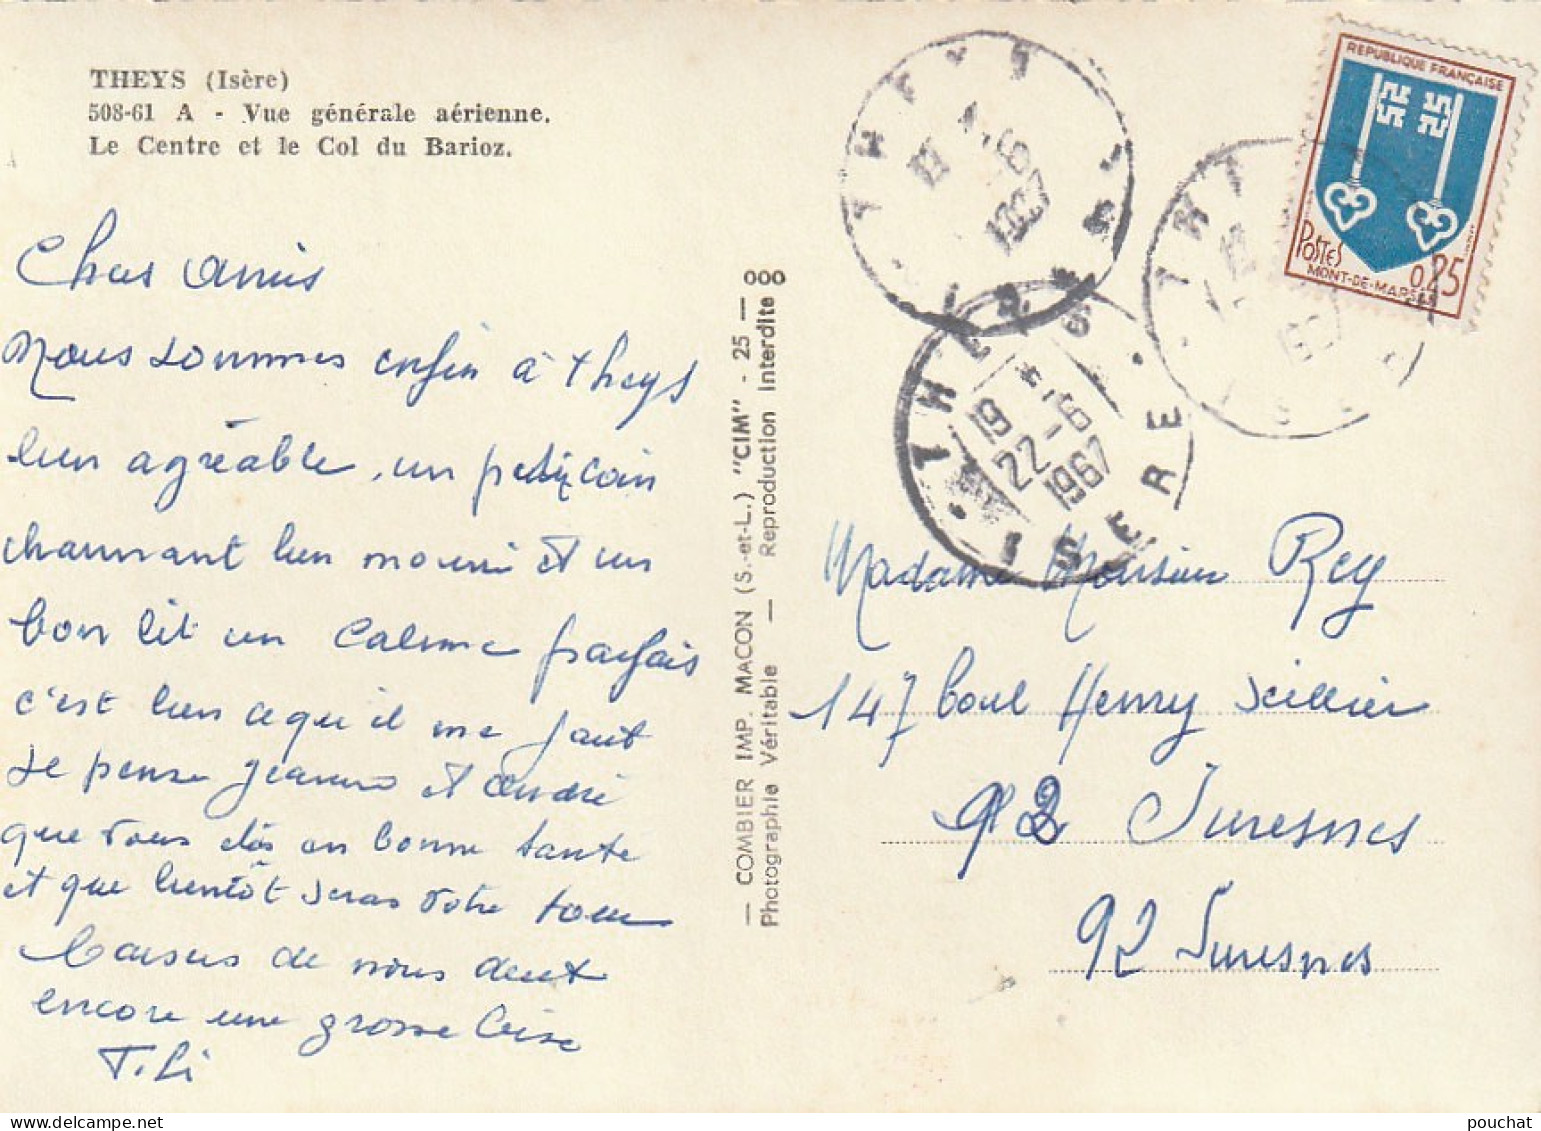 THEYS (Isère)
508-61 A - Vue générale aérienne.
Le Centre et le Col du Barioz.
Chers amis
Nous sommes enfin à theys
bien agréable, un petit coin
charmant bien nourri et un
bon lit un calme parfais
c'est bien ce qu'il me faut
Je pense Jeanne et andré
que vous etes en bonne sante
et que bientôt seras votre tour
baisers de nous deux
encore une grosse bise
T. Li
— COMBIER IMP. MACON (S.-et-L.) "CIM" - 25 —
Photographie Véritable — Reproduction Interdite
000
REPUBLIQUE FRANÇAISE
POSTES
0,25
MONT-DE-MARSAN
THEYS
ISERE
19 H
22-6
1967
Madame Monsieur Rey
147 boul Henry Sellier
92 Suresnes
92 Suresnes
pouchat